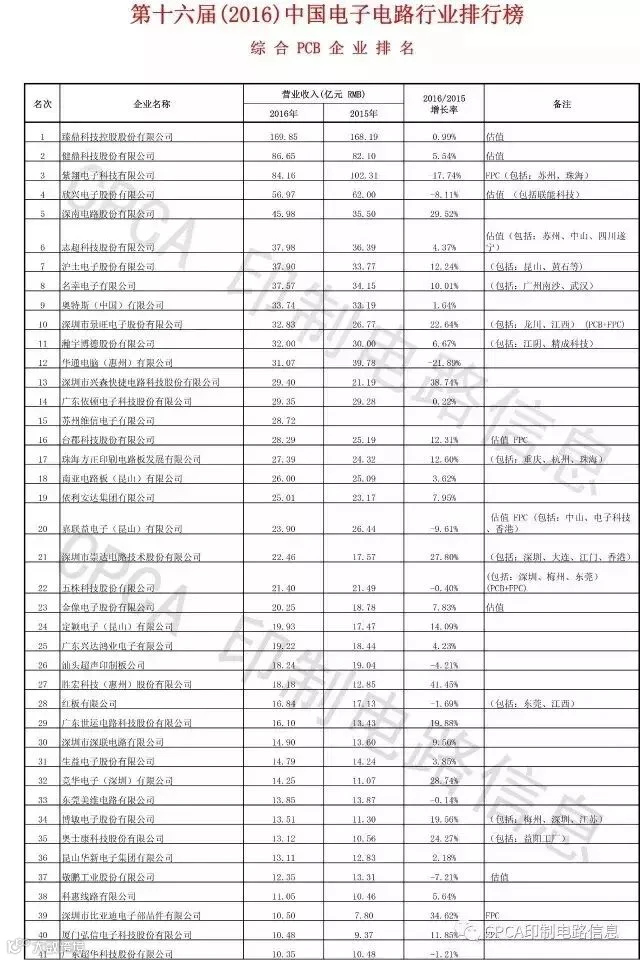 第十六届(2016)中国电子电路行业排行榜
综 合 PCB 企 业 排 名
名次 企业名称 营业收入(亿元 RMB) 2016/2015 增长率 备注
2016年 2015年
1 臻鼎科技控股股份有限公司 169.85 168.19 0.99% 估值
2 健鼎科技股份有限公司 86.65 82.10 5.54% 估值
3 紫翔电子科技有限公司 84.16 102.31 -17.74% FPC(包括：苏州、珠海)
4 欣兴电子股份有限公司 56.97 62.00 -8.11% 估值 (包括联能科技)
5 深南电路股份有限公司 45.98 35.50 29.52%
6 志超科技股份有限公司 37.98 36.39 4.37% 估值(包括：苏州、中山、四川遂宁)
7 沪士电子股份有限公司 37.90 33.77 12.24% (包括：昆山、黄石等)
8 名幸电子有限公司 37.57 34.15 10.01% (包括：广州南沙、武汉)
9 奥特斯（中国）有限公司 33.74 33.19 1.64%
10 深圳市景旺电子股份有限公司 32.83 26.77 22.64% (包括：龙川、江西) (PCB+FPC)
11 瀚宇博德股份有限公司 32.00 30.00 6.67% (包括：江阴、精成科技)
12 华通电脑（惠州）有限公司 31.07 39.78 -21.89%
13 深圳市兴森快捷电路科技股份有限公司 29.40 21.19 38.74%
14 广东依顿电子科技股份有限公司 29.35 29.28 0.22%
15 苏州维信电子有限公司 28.72
16 台郡科技股份有限公司 28.29 25.19 12.31% 估值 FPC
17 珠海方正印刷电路板发展有限公司 27.39 24.32 12.60% (包括：重庆、杭州、珠海)
18 南亚电路板（昆山）有限公司 26.00 25.09 3.62%
19 依利安达集团有限公司 25.01 23.17 7.95%
20 嘉联益电子（昆山）有限公司 23.90 26.44 -9.61% 估值 FPC (包括：中山、电子科技、香港)
21 深圳市崇达电路技术股份有限公司 22.46 17.57 27.80% (包括：深圳、大连、江门、香港)
22 五株科技股份有限公司 21.40 21.49 -0.40% (包括：深圳、梅州、东莞) (PCB+FPC)
23 金像电子股份有限公司 20.25 18.78 7.83% 估值
24 定颖电子（昆山）有限公司 19.93 17.47 14.09%
25 广东兴达鸿业电子有限公司 19.22 18.44 4.23%
26 汕头超声印制板公司 18.24 19.04 -4.21%
27 胜宏科技（惠州）股份有限公司 18.18 12.85 41.45%
28 红板有限公司 16.84 17.13 -1.69% (包括：东莞、江西)
29 广东世运电路科技股份有限公司 16.10 13.43 19.88%
30 深圳市深联电路有限公司 14.90 13.60 9.56%
31 生益电子股份有限公司 14.79 14.24 3.85%
32 竞华电子（深圳）有限公司 14.25 11.07 28.74%
33 东莞美维电路有限公司 13.85 13.87 -0.14%
34 博敏电子股份有限公司 13.51 11.30 19.56% (包括：梅州、深圳、江苏)
35 奥士康科技股份有限公司 13.12 10.56 24.27% (包括：益阳工厂)
36 昆山华新电子集团有限公司 13.11 12.83 2.18%
37 敬鹏工业股份有限公司 12.35 13.31 -7.21% 估值
38 科惠线路有限公司 11.05 10.46 5.64%
39 深圳市比亚迪电子部品件有限公司 10.50 7.80 34.62% FPC
40 厦门弘信电子科技股份有限公司 10.48 9.37 11.85%
41 广东超华科技股份有限公司 10.35 10.48 -1.21%
CPCA 印制电路信息
CPCA 印制电路信息
CPCA印制电路信息